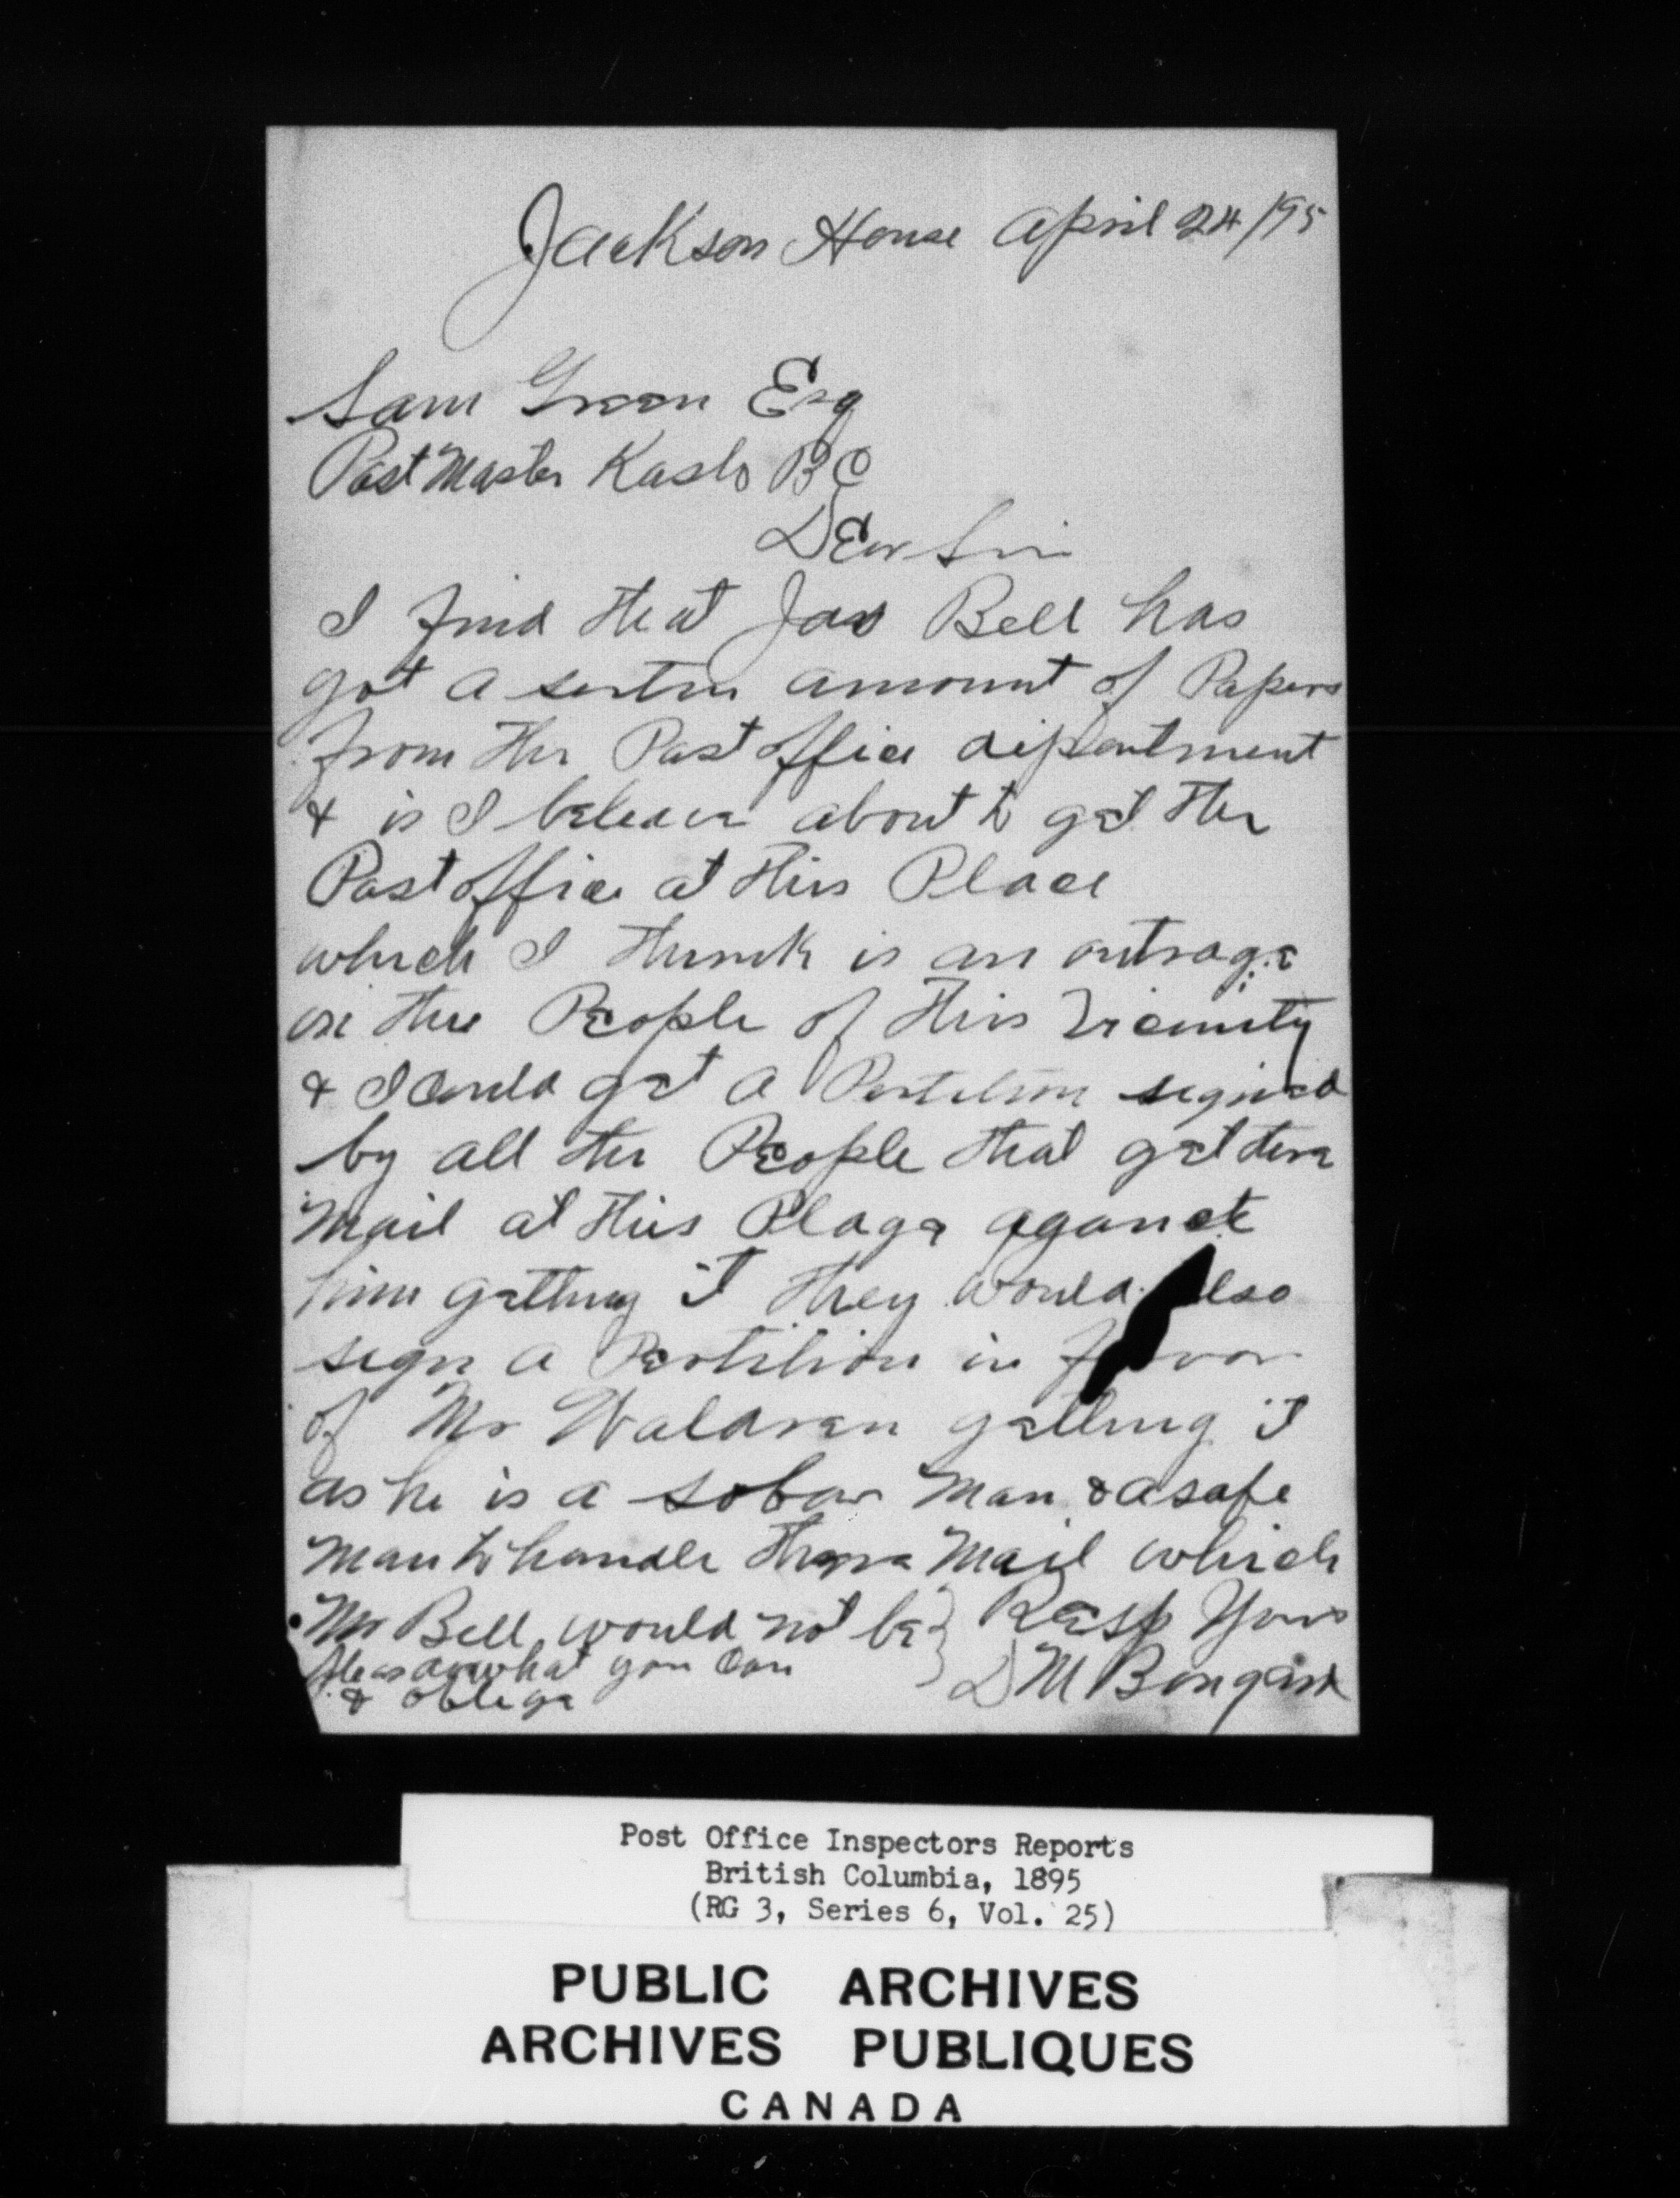 Jackson House April 24/95
Sam Green Esq
Post Master Kaslo B C
Dear Sir
I find that Jas Bell has
got a sertin amount of Papers
from the Post office dipartment
& is I beleave about to get the
Post office at this Place
which I think is an outrage
on the People of this Vicinity
& I could get a Pertition signed
by all the People that get there
Mail at this Place aganst
him getting it they would also
sign a Pertition in favor
of Mr Waldren getting it
as he is a sober Man & a safe
man to handle there Mail which
Mr Bell would not be } Resp Yours
Pleas do what you can
& oblige
D M
Post Office Inspectors Reports
British Columbia, 1895
(RG 3, Series 6, Vol. 25)
PUBLIC ARCHIVES
ARCHIVES PUBLIQUES
CANADA